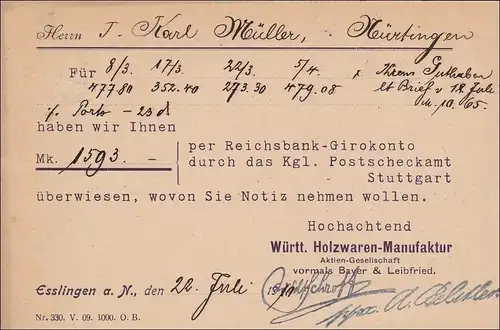 Herrn J. Karl Müller, Nürtingen
Für 8/3. 17/3. 22/3. 5/4. Ihrem Guthaben
477.80 352.40 273.30 479.08 lt Brief v 18. Juli
Porto - 23 M. 10.65.
haben wir Ihnen
Mk. 1593.- per Reichsbank-Girokonto
durch das Kgl. Postscheckamt
Stuttgart
überwiesen, wovon Sie Notiz nehmen wollen.
Hochachtend
Württ. Holzwaren-Manufaktur
Aktien-Gesellschaft
vormals Bayer & Leibfried.
Esslingen a. N., den 22. Juli 19
Nr. 330. V. 09. 1000. O. B.